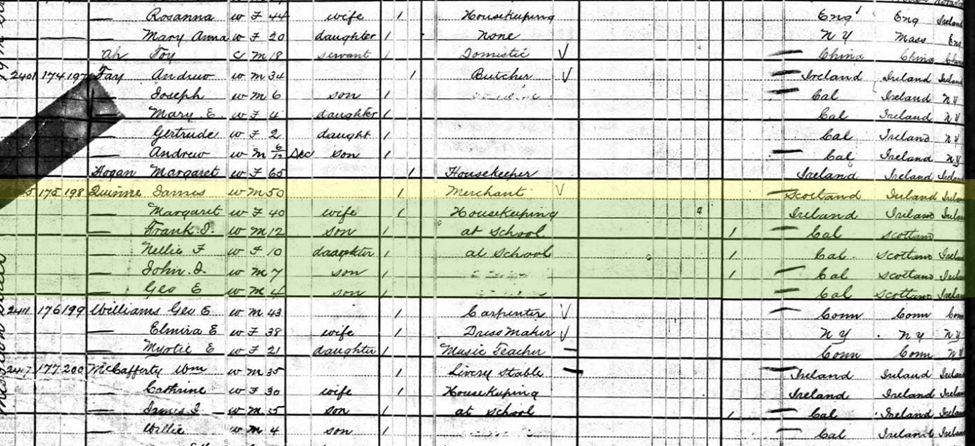 — Rosanna w F 44 wife 1 Housekeeping Eng Eng Ireland
— Mary Anna w F 20 daughter 1 None N Y Mass
Ah Foy c M 18 servant 1 Domistic China China
2401 174 197 Fay Andrew w M 34 1 Butcher Ireland Ireland
Joseph w M 6 son Cal Ireland N Y
— Mary E w F 4 daughter Cal Ireland N Y
Gertrude w F 2 daught Cal Ireland N Y
— Andrew w M 6/12 Dec son Cal Ireland N Y
Hogan Margaret w F 65 1 Housekeeper Ireland Ireland
175 198 Quinne James w M 50 1 Merchant Scotland Ireland
— Margaret w F 40 wife 1 Housekeeping Ireland Ireland
— Frank w M 12 son at School 1 Cal Scotland
— Nellie F w F 10 daughter at School 1 Cal Scotland
— John w M 7 son 1 Cal Scotland
— Geo E w M 4 son Cal Scotland
2411 176 199 Williams Geo E w M 43 1 Carpenter Conn Conn Conn
— Elmira E w F 38 wife 1 Dress Maker N Y N Y N Y
— Myrtie E w F 21 daughter 1 Music Teacher Conn Conn N Y
177 200 McCafferty Wm w M 35 1 Livery Stable Ireland Ireland
— Cathrine w F 30 wife 1 Housekeeping Ireland Ireland
— James w M 5 son at School 1 Cal Ireland
— Willie w M 4 son Cal Ireland